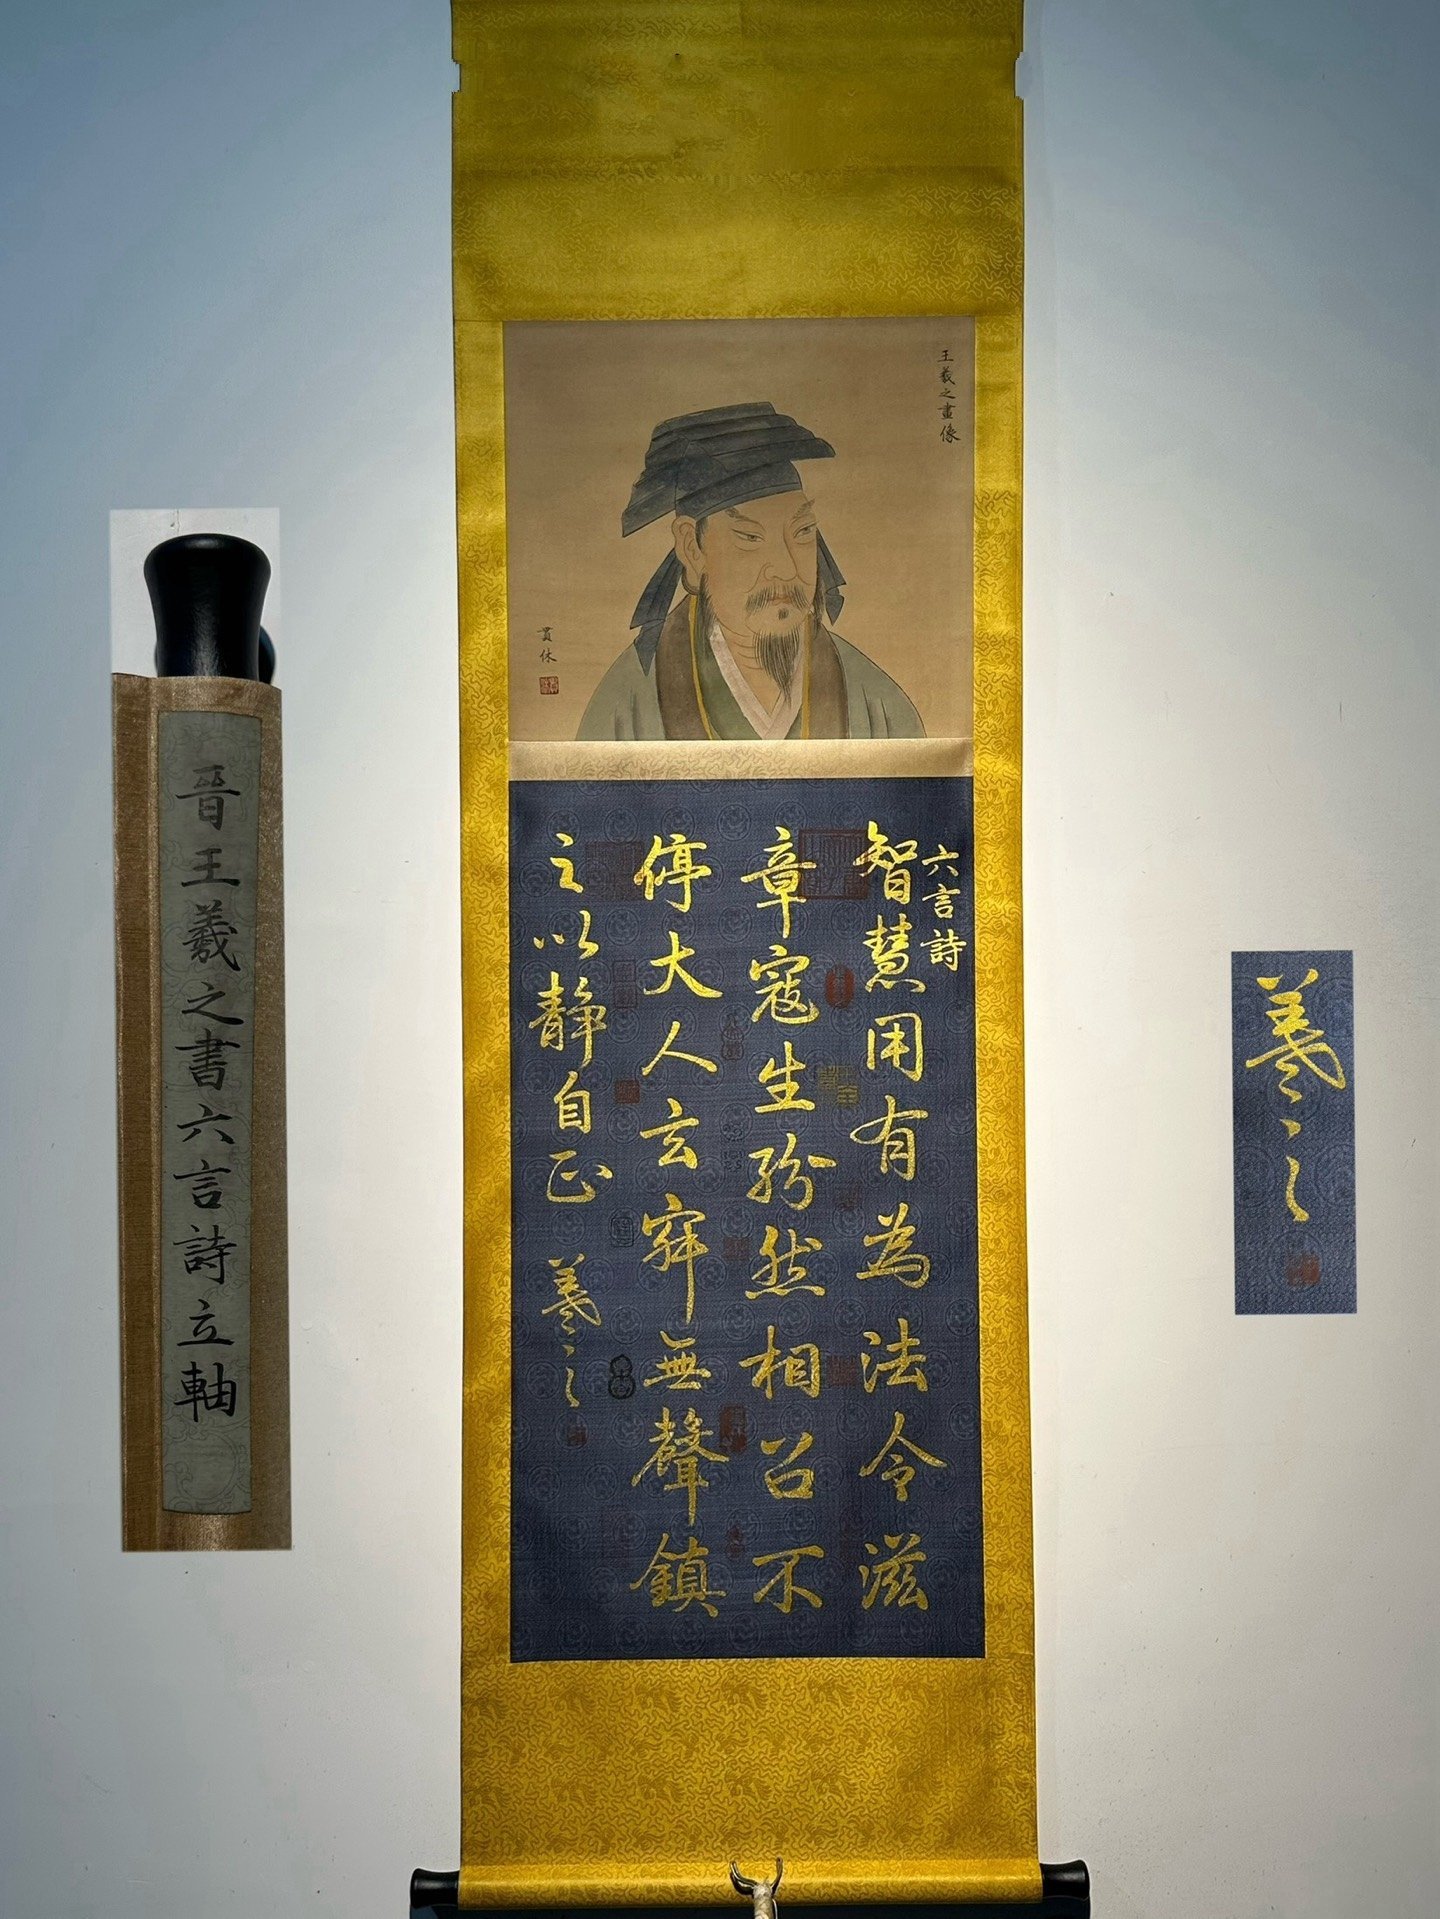 王羲之畫像
貫休
六言詩
智慧用有為法令滋
章寇生紛然相召不
停大人玄寂無聲鎮
之以靜自正 羲之
晉王羲之書六言詩立軸
羲之